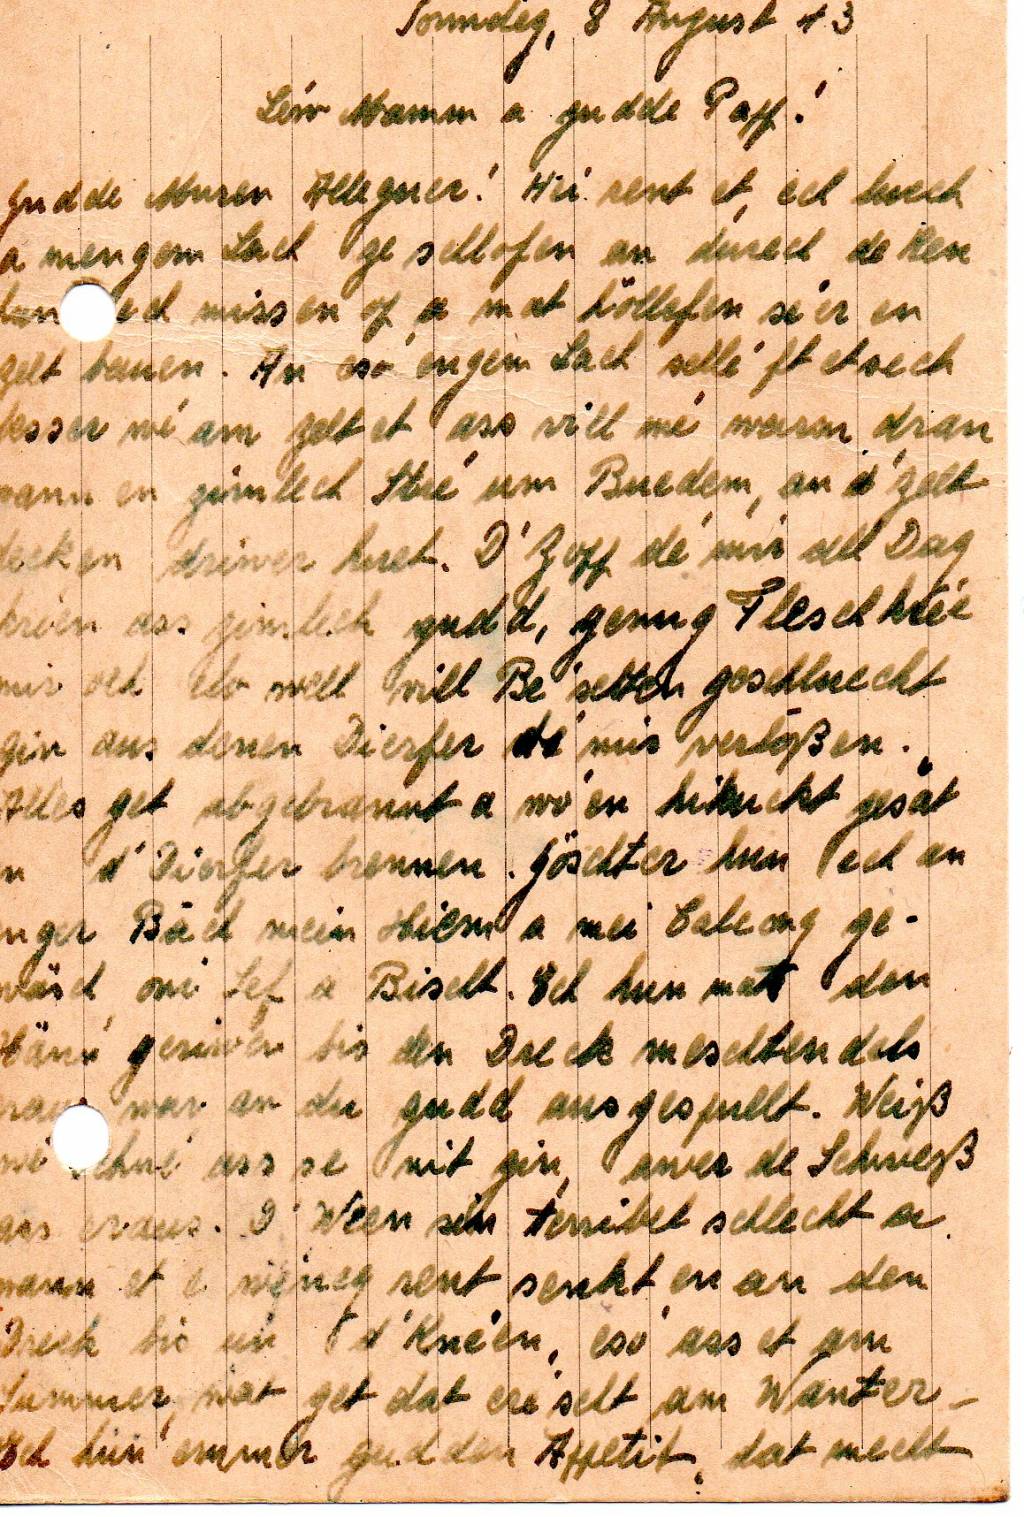 Sonndeg, 8 August 43
Léiv Mamm a gudde Papp!
Gudde Muren Alleguer! Hei rent et, ech huech
a mengem Lach geschlofen an durech de Ren
hun ech missen op a mat höllefen séer en
Zelt bauen. An esó engem Lach schléft et sech
besser wé am Zelt et ass vill mé warem dran
wann en zimlech Stré um Buedem, an d'Zelt
decken driwer huet. D'Zopp dé mir all Dag
kréen ass zimlech gudd, genug Flesch kréé
mir och elo well vill Béischten geschluecht
gin aus denen Dierfer dé mir verloßen.
Alles get abgebrannt a wó en hikuckt gesät
en d'Dierfer brennen. Göschter hun ech an
enger Bäch mein Hiem a mei Caleçong ge-
wäsch, oni Sef a Bischt. Ech hun mat den
Hänn geriwen bis den Dreck meschtendels
eraus war an du gudd ausgespullt. Weiß
wé Schné ass se nit gin, awer de Schweß
ass eraus. D'Ween sin terribel schlecht a
wann et e wéineg rent senkt en an den
Dreck bis un d'Knéen, esó ass et am
Summer, wat get dat eréischt am Wanter_
Ech hun emmer gudden Appetit, dat mecht